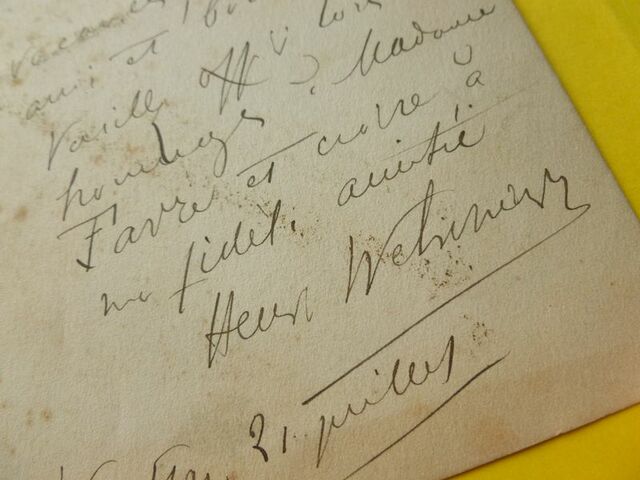 vacances
ami et
Veuillez offrir
hommages à Madame
Favre et croire à
ma fidèle amitié
Henri Welschinger
21 juillet